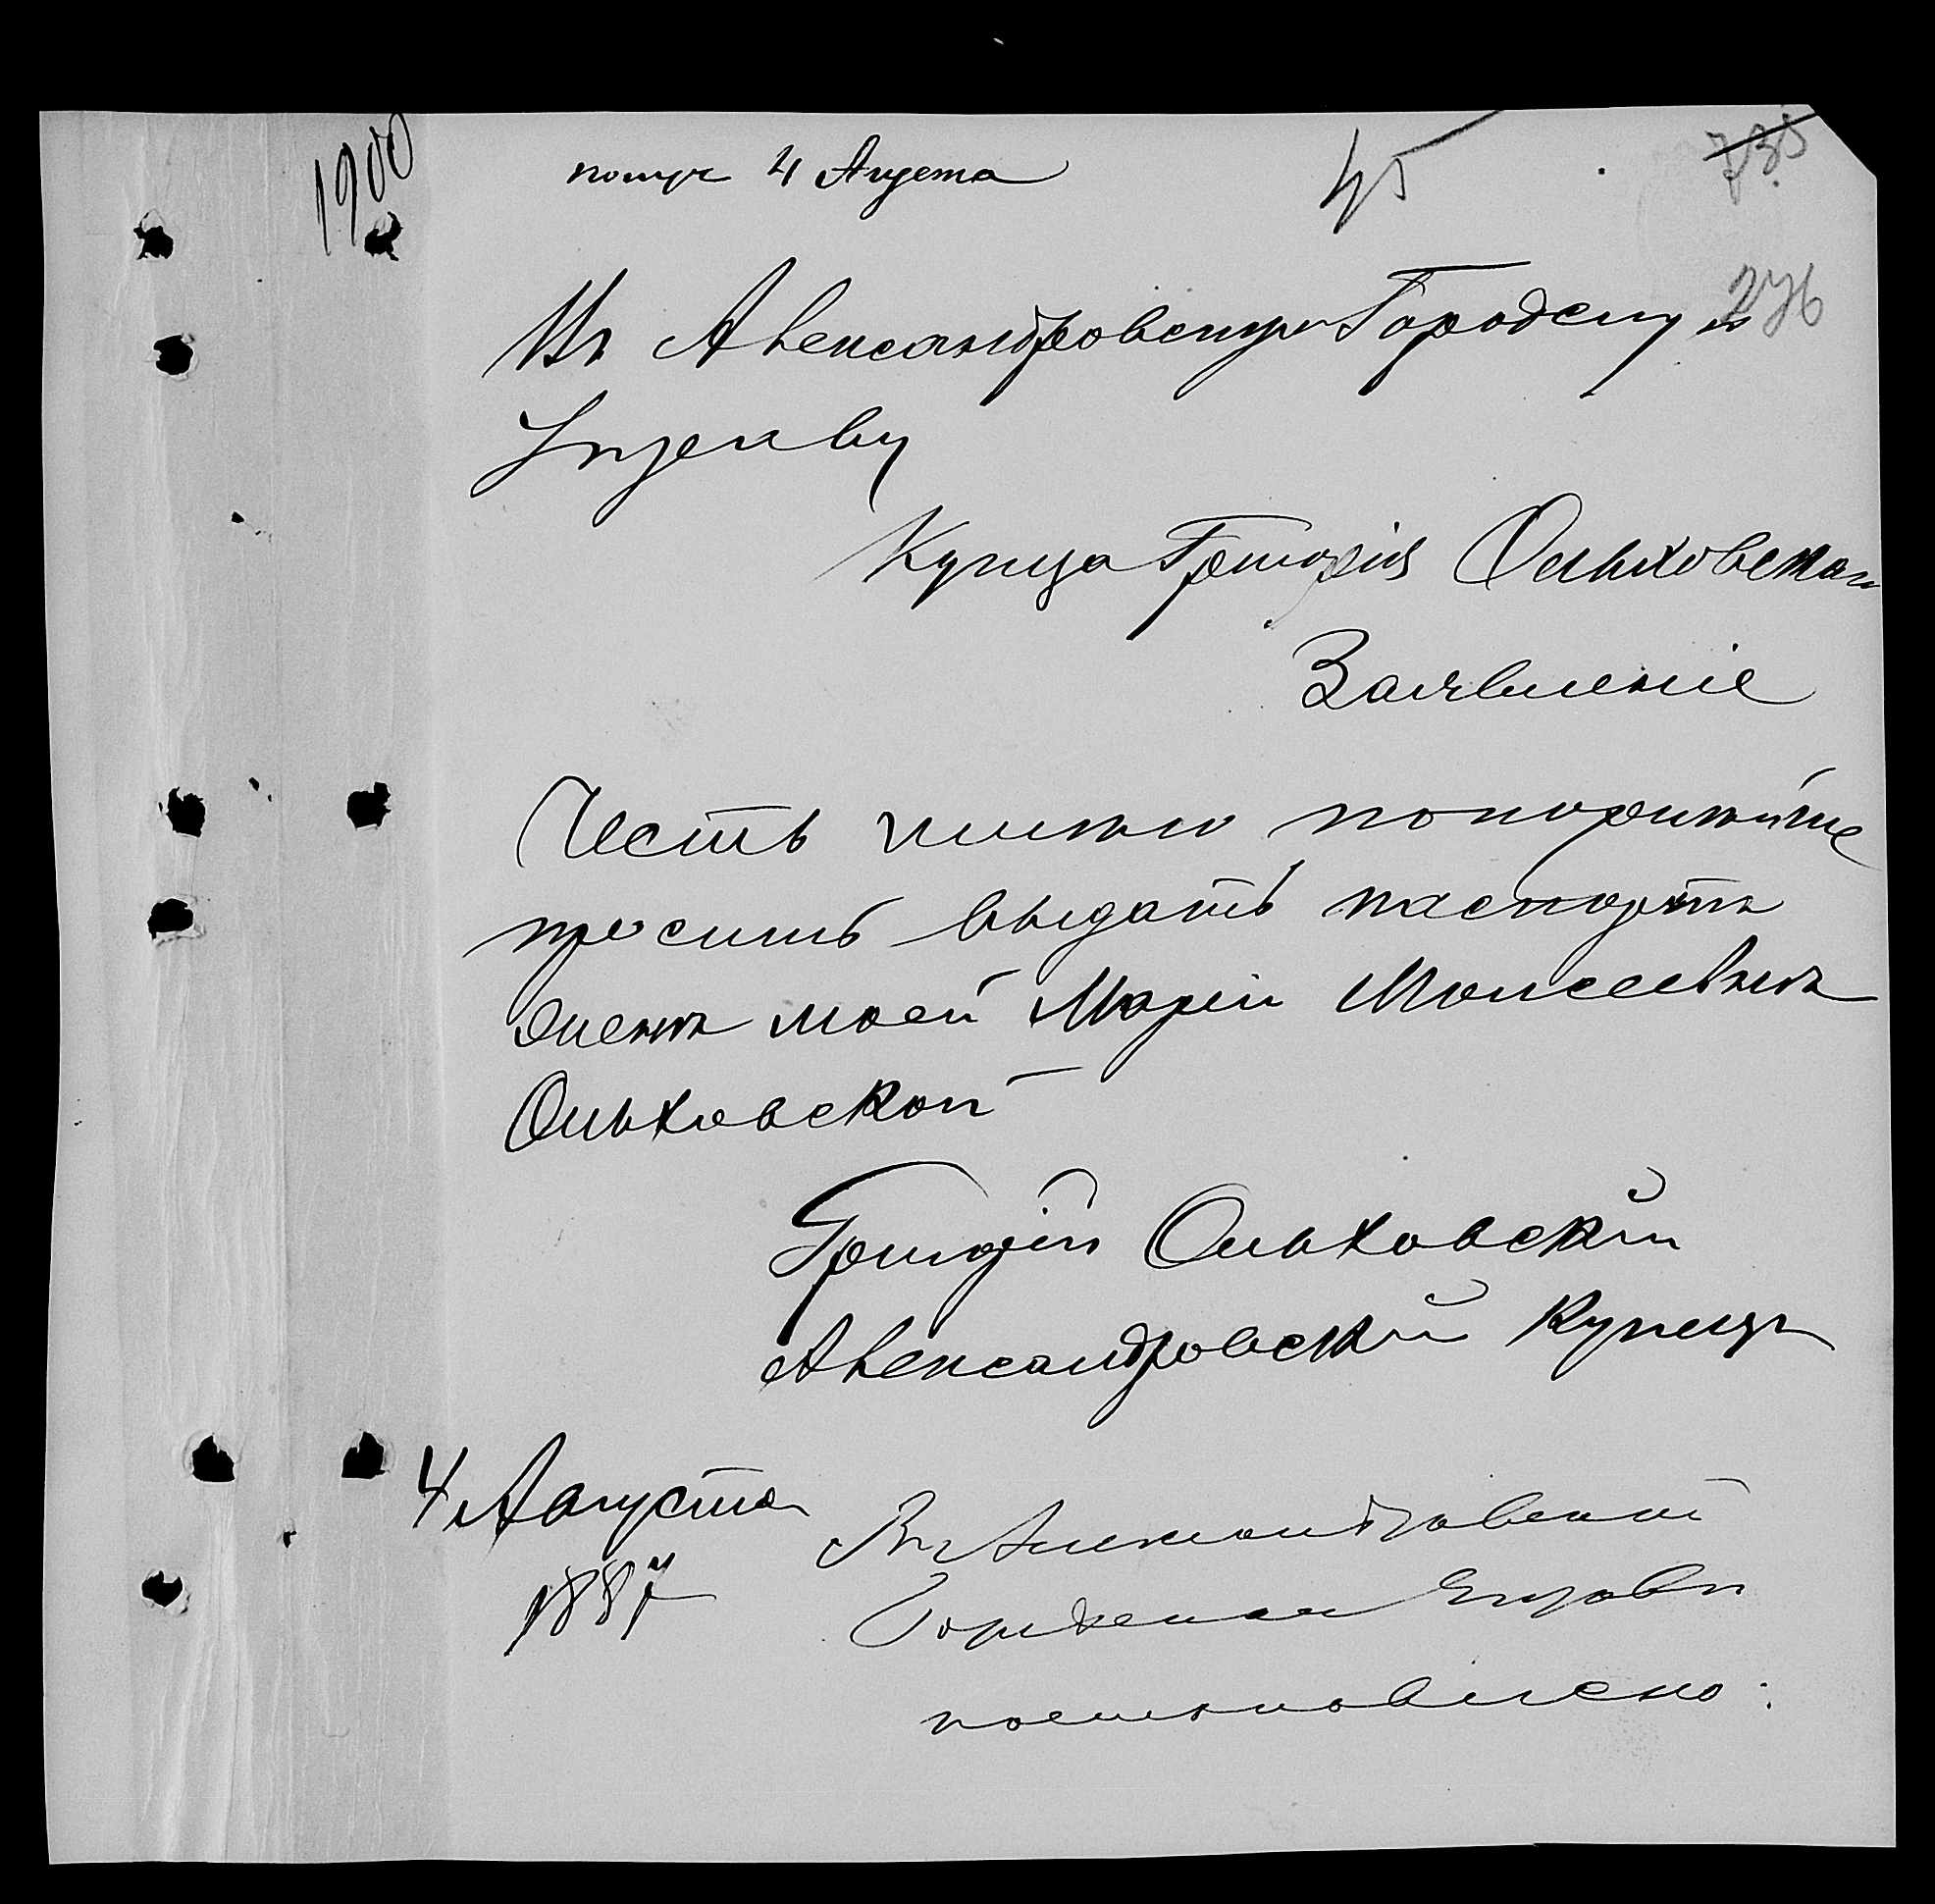 1900
получ 4 Августа
45
735
276
Въ Александровскую Городскую
Управу
Купца Григорія Ольховскаго
Заявленіе
Честь имею покорнейше
просить выдать паспортъ
жене моей Маріи Моисеевне
Ольховской
Григорій Ольховскій
Александровскій Купецъ
4 Августа
1887
Въ Александровской
Городской Управе
постановлено: